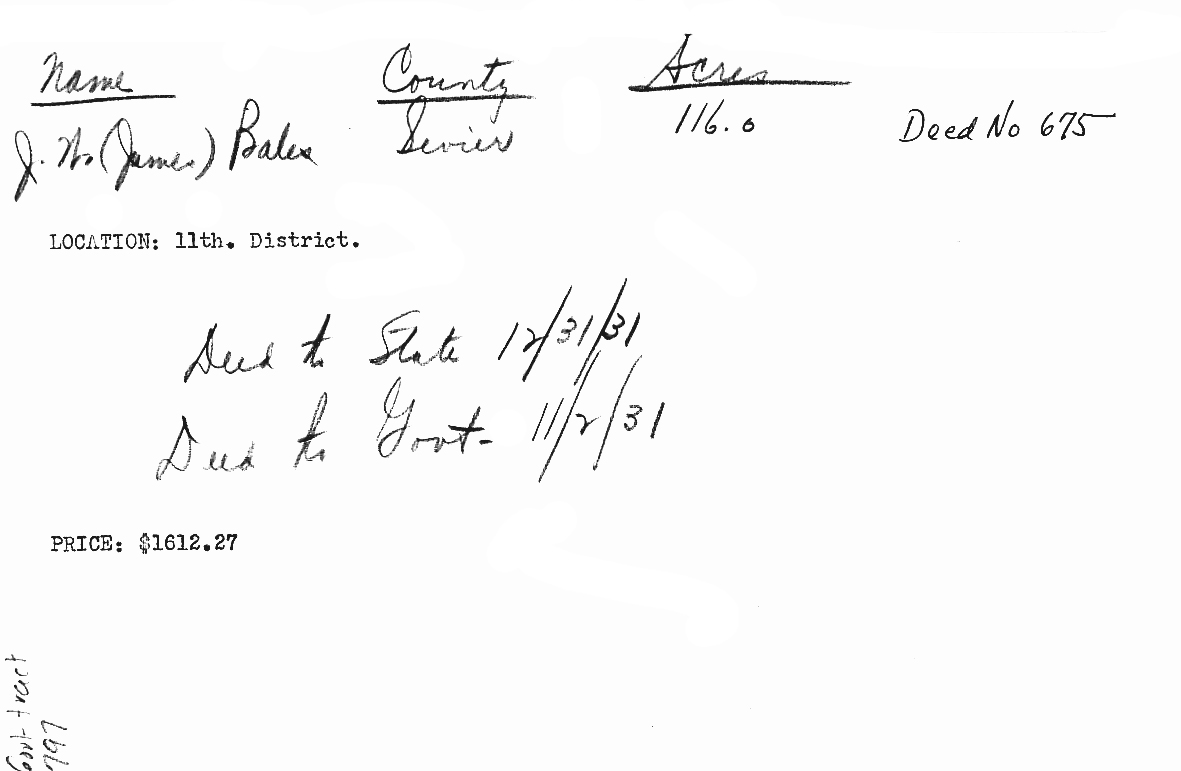 Name County Acres
J. W. (James) Bales Sevier 116.0 Deed No 675
LOCATION: 11th. District.
Deed to State 12/31/31
Deed to Govt- 11/2/31
PRICE: $1612.27
Govt tract
797